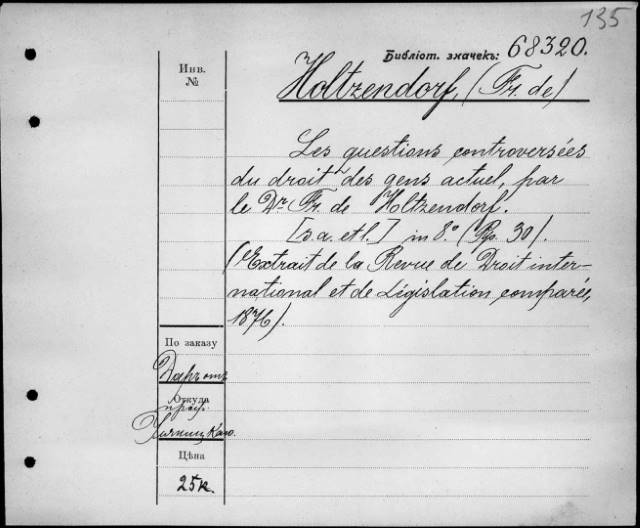 135
Библіот. значекъ: 68320.
Инв.
№
Holtzendorf, (Fr. de)
Les questions controversées
du droit des gens actuel, par
le Dr. Fr. de Holtzendorf.
[s. a. et l.] in 8.° (Pp. 30).
(Extrait de la Revue de Droit inter-
national et de Législation comparée,
1876).
По заказу
Даръ отъ
Откуда
проф.
Цѣна
25 к.